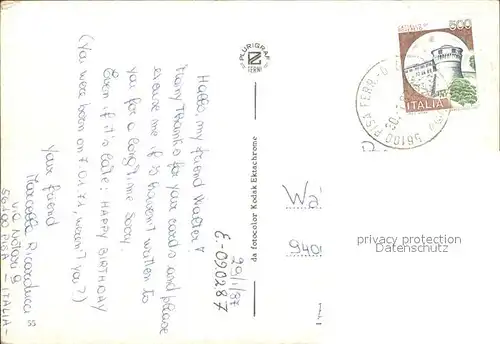 Hallo, my friend Walter!
Many Thanks for your cards and please
excuse me if I haven't written to
you for a long time. Sorry.
Even if it is late: HAPPY BIRTHDAY
(You were born on 7.01.71, wasn't you?)
your friend
56100 PISA - ITALIA -
29/1/87
E-090287
PLURIGRAF
TERNI
da fotocolor Kodak Ektachrome
500
ITALIA
56100 PISA FERR.
Wa
940
privacy protection
Datenschutz